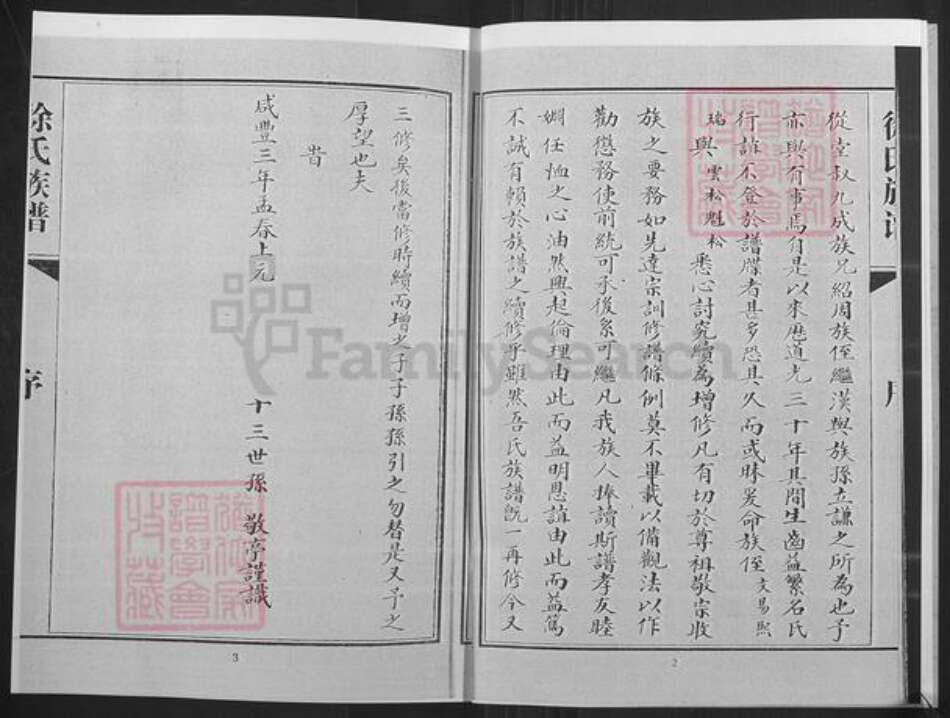 從堂叔九成族兄紹周族侄繼漢與族孫立謙之所為也予
亦與有事焉自是以來歷道光三十年其間生齒益繁名氏
行誼不登於譜牒者甚多恐其久而或昧爰命族侄文易熙
瑞與雲松魁松悉心討究續為增修凡有切於尊祖敬宗收
族之要務如先達宗訓修譜條例莫不畢載以備觀法以作
勸懲務使前統可承後系可繼凡我族人捧讀斯譜孝友睦
婣任恤之心油然興起倫理由此而益明恩誼由此而益篤
不誠有賴於族譜之續修乎雖然吾氏族譜既一再修今又
2
三修矣後當修時續而增之子子孫孫引之勿替是又予之
厚望也夫
旹
咸豐三年孟春上元 十三世孫 敬亭謹識
3
徐氏族譜
序
FamilySearch